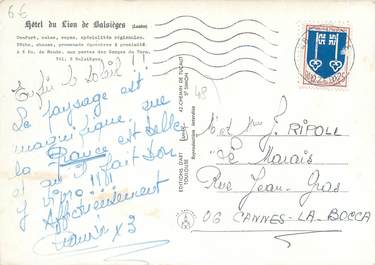 6€
Hôtel du Lion de Balsièges (Lozère)
Confort, calme, repos, spécialités régionales.
Pêche, chasse, promenade équestres à proximité
à 8 Km. de Mende. aux portes des Gorges du Tarn.
Tél. 5 Balsièges
Enfin le soleil !!
Le paysage est
magnifique, que
la France est belle
et qu'il fait bon
y vivre !!
Affectueusement
x 3
EDITIONS D'ART
TOULOUSE
Reproduction interdite
42, CHEMIN DE TUCAUT
ST SIMON
48
M. et Mme J. RIPOLL
"Le Marais"
Rue Jean Gras
06 CANNES-LA-BOCCA